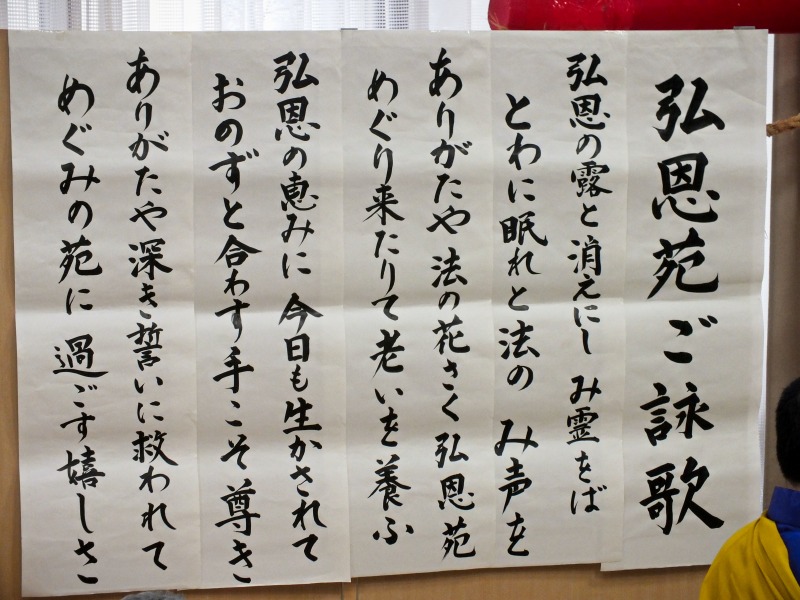 弘恩苑ご詠歌
弘恩の露と消えにし み霊をば
とわに眠れと法の み声を
ありがたや 法の花さく 弘恩苑
めぐり来たりて 老いを養ふ
弘恩の恵みに 今日も生かされて
おのずと合わす手こそ尊き
ありがたや 深き誓いに救われて
めぐみの苑に 過ごす嬉しさ